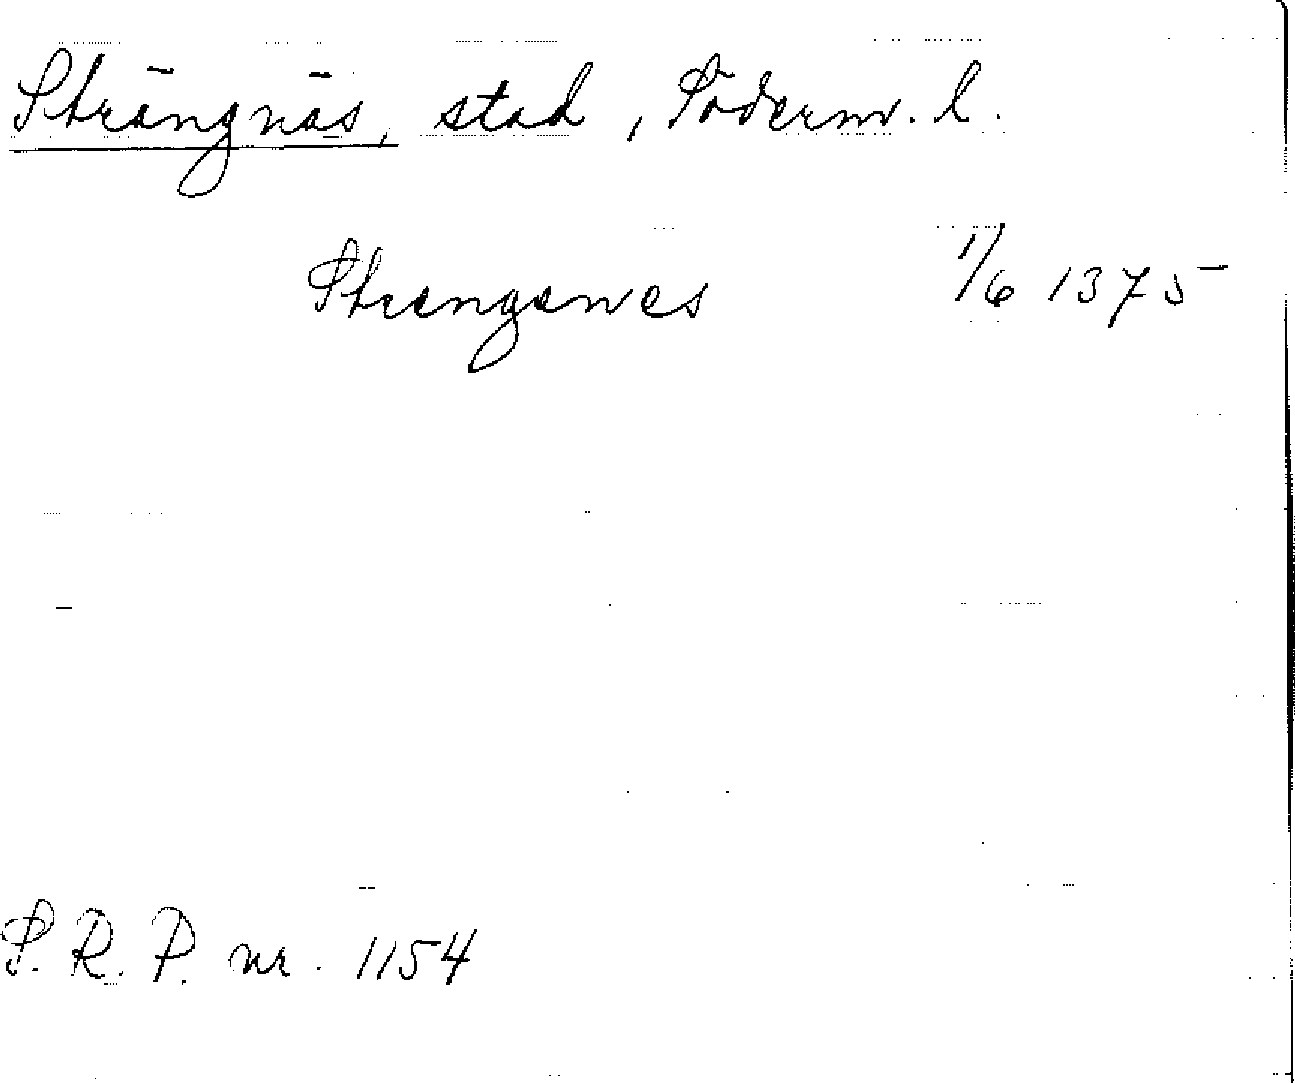 Strängnäs, stad, Söderm. l.
Strengenes 1/6 1375
S. R. P. nr. 1154